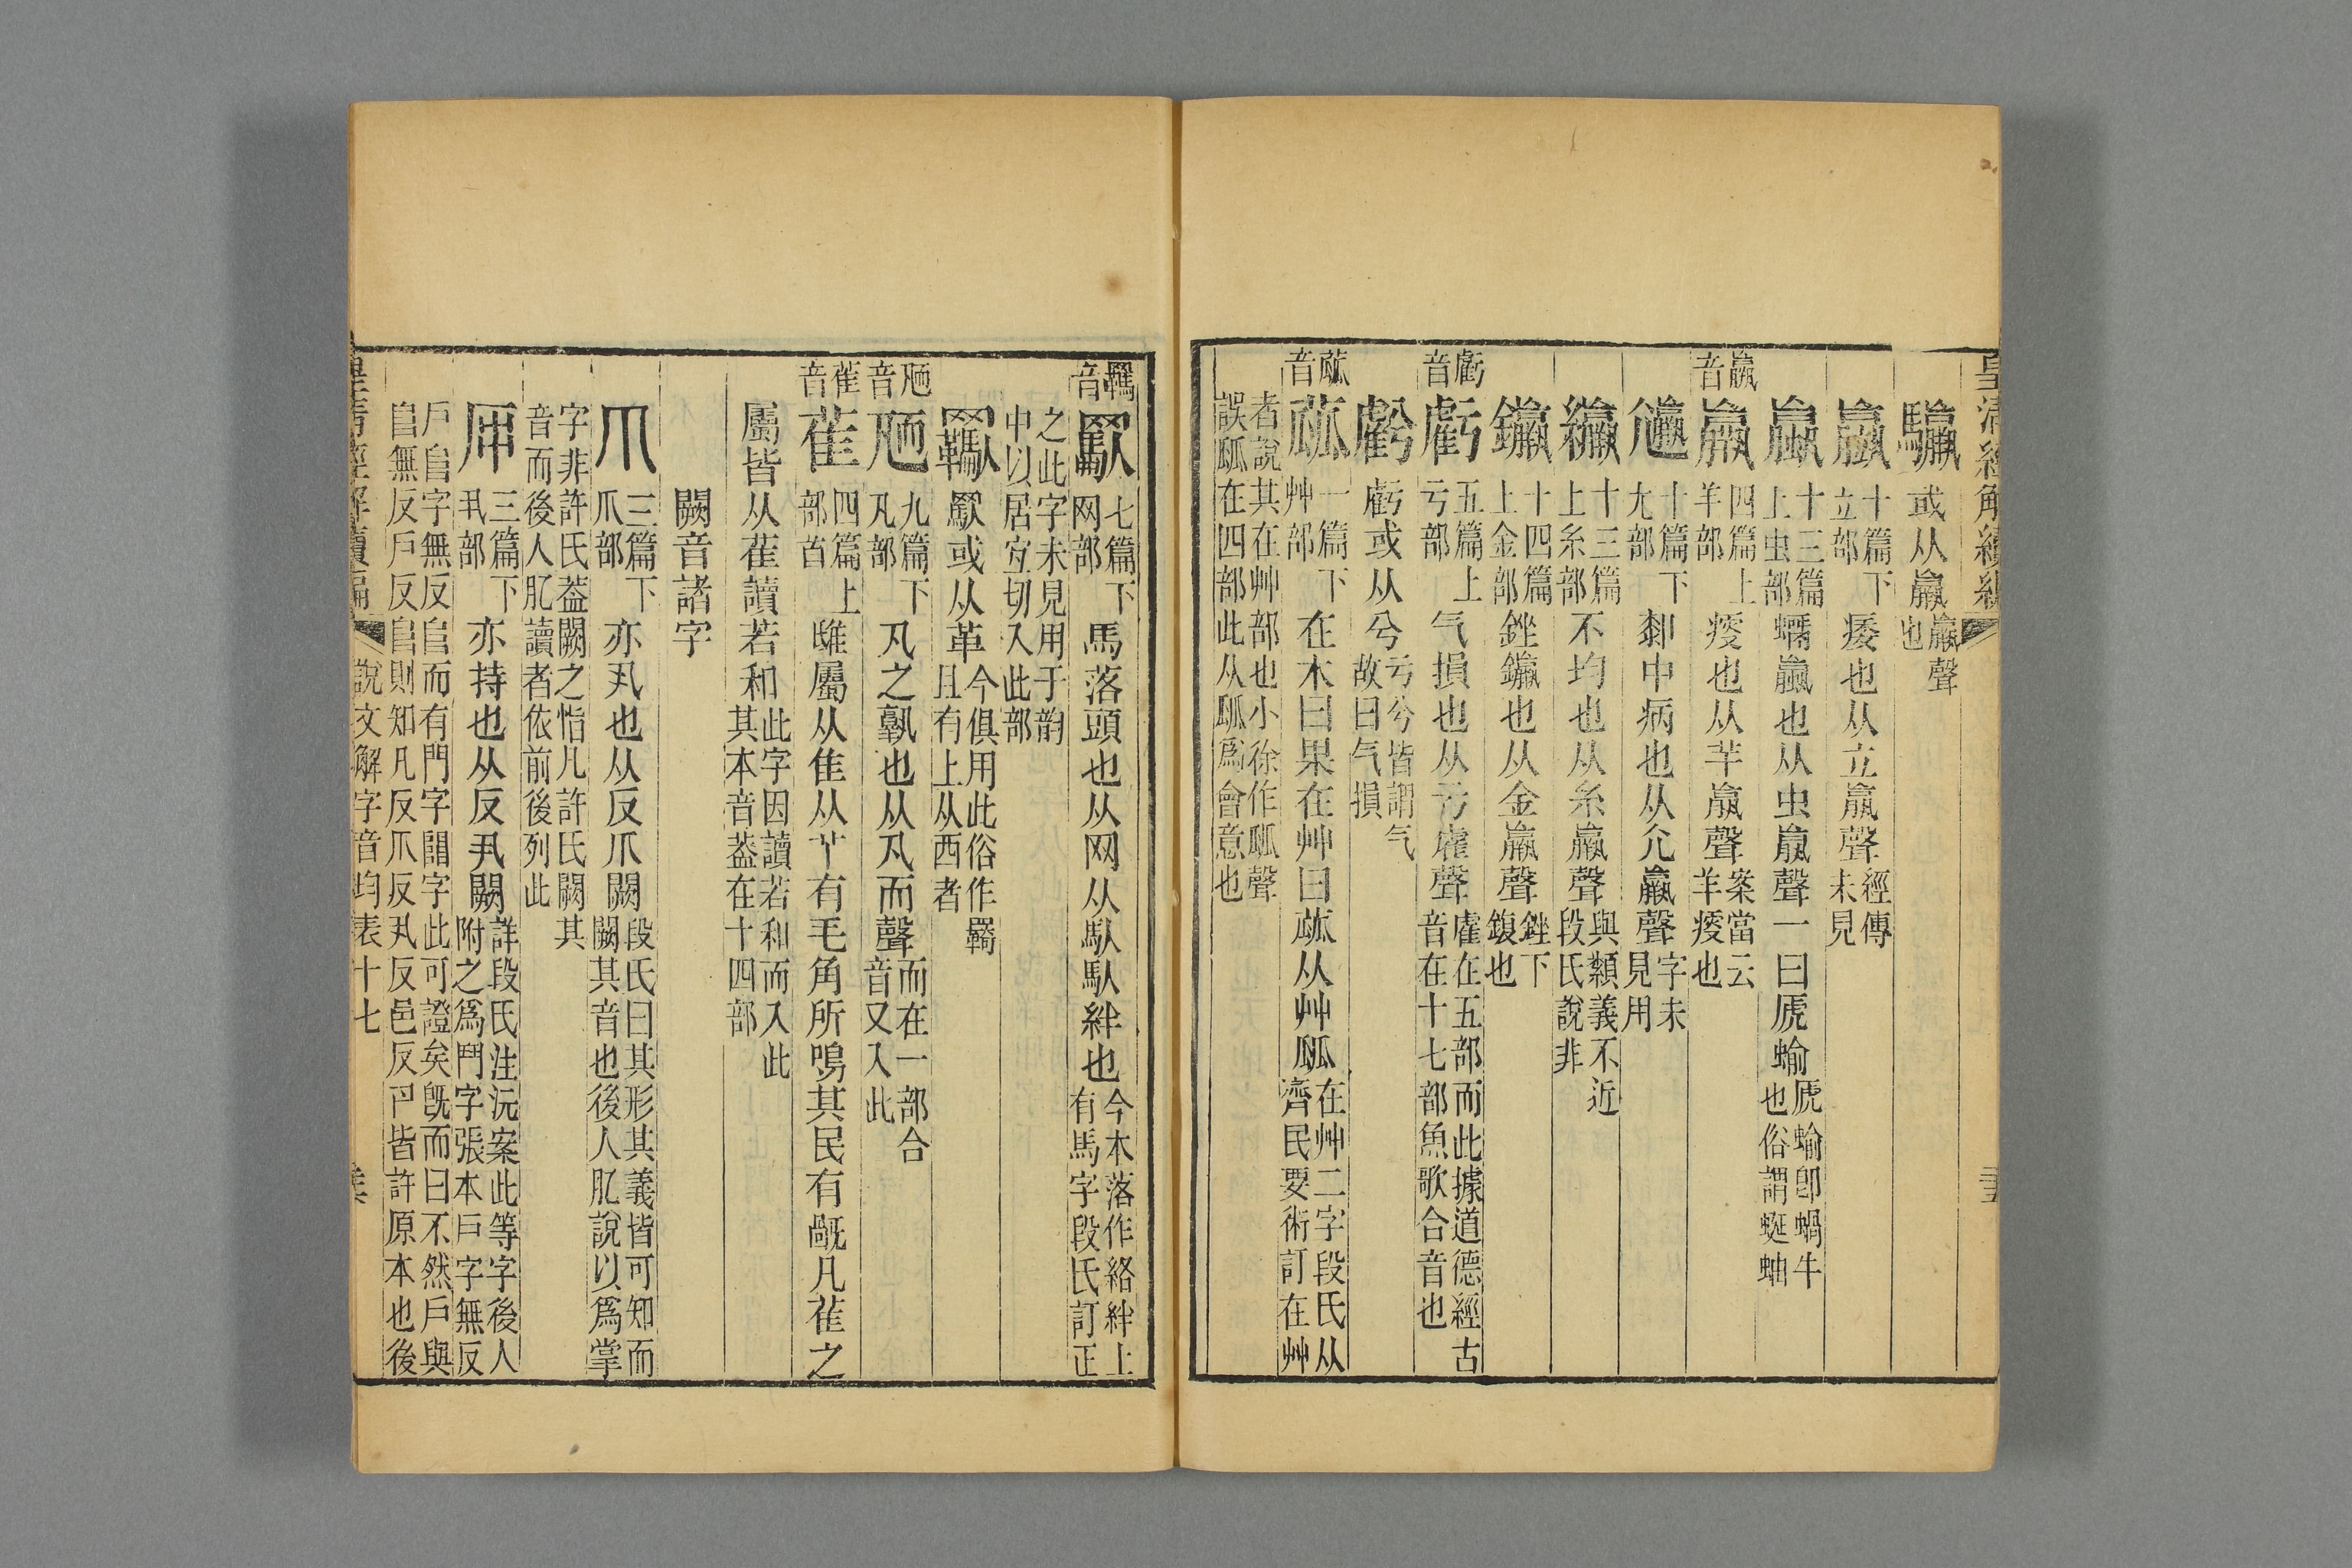 皇清經解續編
驘 或从𦝠 𦝠聲也
𥪕 十篇下立部 痿也从立𦝠聲 經傳未見
蠃 十三篇上虫部 蠣蠃也从虫𦝠聲一曰虒蝓 虒蝓即蝸牛也俗謂蜒蚰
羸音 羸 四篇上羊部 瘦也从羊𦝠聲 案當云羊瘦也
𡰠 十篇下尢部 厀中病也从尣羸聲 字未見用
纙 十三篇上糸部 不均也从糸羸聲 與纇義不近段氏說非
鑘 十四篇上金部 銼鑘也从金羸聲 銼下鍑也
虧音 虧 五篇上亏部 气損也从亏雐聲 雐在五部而此據道德經古音在十七部魚歌合音也
𧇾 虧或从兮 亏兮皆謂气故曰气損
蓏音 蓏 一篇下艸部 在木曰果在艸曰蓏从艸㼌 在艸二字段氏从齊民要術訂在艸
者說其在艸部也小徐作㼌聲誤㼌在四部此从㼌爲會意也
羈音 𦋺 七篇下网部 馬落頭也从网从馽馽絆也 今本落作絡絆上有馬字段氏訂正
之此字未見用于韵中以居宜切入此部
羈 𦋺或从革 今俱用此俗作羇且有上从西者
𠨒音 𠨒 九篇下丸部 丸之孰也从丸而聲 而在一部合音又入此
雈音 雈 四篇上部首 雎屬从隹从𦫳有毛角所鳴其民有𠧧凡雈之
屬皆从雈讀若和 此字因讀若和而入此其本音葢在十四部
闕音諸字
爪 三篇下爪部 亦丮也从反爪闕 段氏曰其形其義皆可知而闕其音也後人肊說以爲掌
字非許氏葢闕之恉凡許氏闕其音而後人肊讀者依前後列此
𠨭 三篇下丮部 亦持也从反丮闕 詳段氏注沅案此等字後人附之爲鬥字張本戶字無反
戶𨸏字無反𨸏而有門字𨺅字此可證矣旣而曰不然戶與𨸏無反戶反𨸏則知凡反爪反丮反邑反卪皆許原本也後
皇清經解續編 說文解字音均表十七